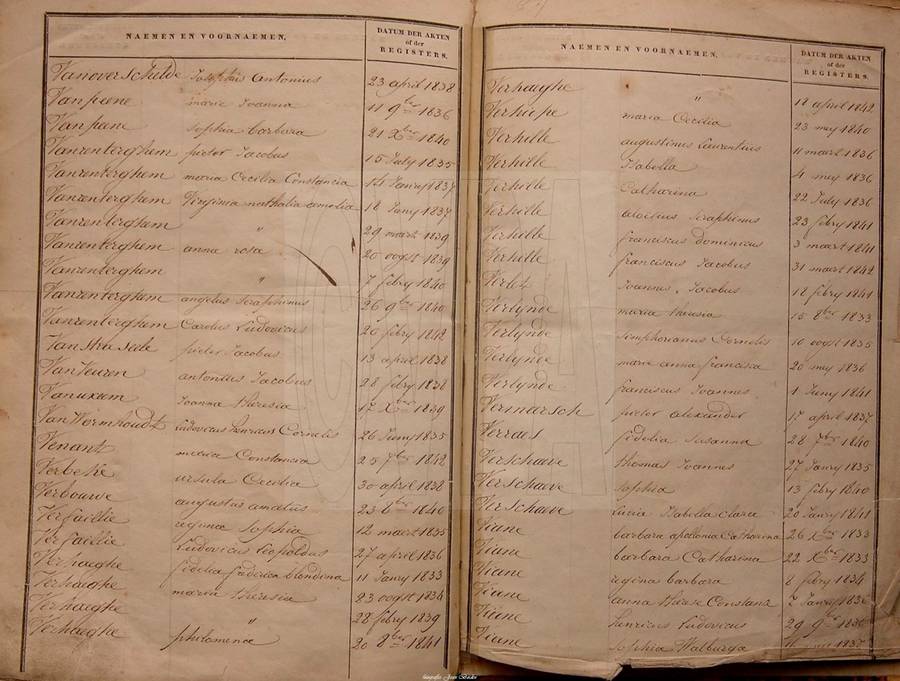 NAEMEN EN VOORNAEMEN.
DATUM DER AKTEN
of der
REGISTERS.
Vanoverschelde Josephus Antonius 23 april 1838
Vanpeene marie Joanna 11 9bre 1836
Vanpeene sophia barbara 21 Xbre 1840
Vanrenterghem pieter Jacobus 15 July 1835
Vanrenterghem maria Cecilia Constancia 14 Janry 1837
Vanrenterghem Virginia nathalia amelia 18 Janry 1837
Vanrenterghem " 29 maart 1839
Vanrenterghem anna rosa 20 oogst 1839
Vanrenterghem " 7 febry 1840
Vanrenterghem angelus Seraphinus 26 9bre 1840
Vanrenterghem Carolus Ludovicus 20 febry 1842
Van Straseele pieter Jacobus 13 april 1838
Van Veuren antonius Jacobus 28 febry 1838
Vanuxem Joanna theresia 17 Xbre 1839
Van Wormhoudt Ludovicus henricus Cornelis 26 Juny 1835
Venant melia Constancia 25 7bre 1842
Verbeke ursula Cecilia 30 april 1838
Verbouwe augustus amatus 23 1840
Verfaillie regina sophia 12 maart 1835
Verfaillie Ludovicus Leopoldus 27 april 1836
Verhaeghe fidelia frederica blondina 11 Janry 1833
Verhaeghe maria theresia 23 oogst 1834
Verhaeghe " 28 febry 1839
Verhaeghe philomene 20 8bre 1841
NAEMEN EN VOORNAEMEN.
DATUM DER AKTEN
of der
REGISTERS.
Verhaeghe " 18 april 1842
Verhiepe maria Cecilia 23 mey 1840
Verhille augustinus Laurentius 11 maart 1836
Verhille Isabella 4 mey 1836
Verhille Catharina 22 July 1836
Verhille aloisius Seraphinus 23 febry 1841
Verhille franciscus dominicus 3 maart 1841
Verhille franciscus Jacobus 31 maart 1842
Verlet Joannes Jacobus 18 febry 1841
Verlynde maria theresia 15 8bre 1833
Verlynde Simphorianus Cornelis 10 oogst 1835
Verlynde marie anna francisca 20 mey 1836
Verlynde franciscus Joannes 1 Juny 1841
Vermarsch pieter alexander 17 april 1837
Verraes fidelia Susanna 28 7bre 1840
Verschaeve thomas Joannes 27 Janry 1835
Verschaeve Sophia 13 febry 1840
Verschaeve Lucia Isabella clara 20 Janry 1841
Viane barbara apolonia Catharina 26 Xbre 1833
Viane barbara Catharina 22 Xbre 1833
Viane regina barbara 8 febry 1834
Viane anna therese Constanz 2 Janry 1836
Viane henricus Ludovicus 29 9bre
Viane Sophia Walburga 1837